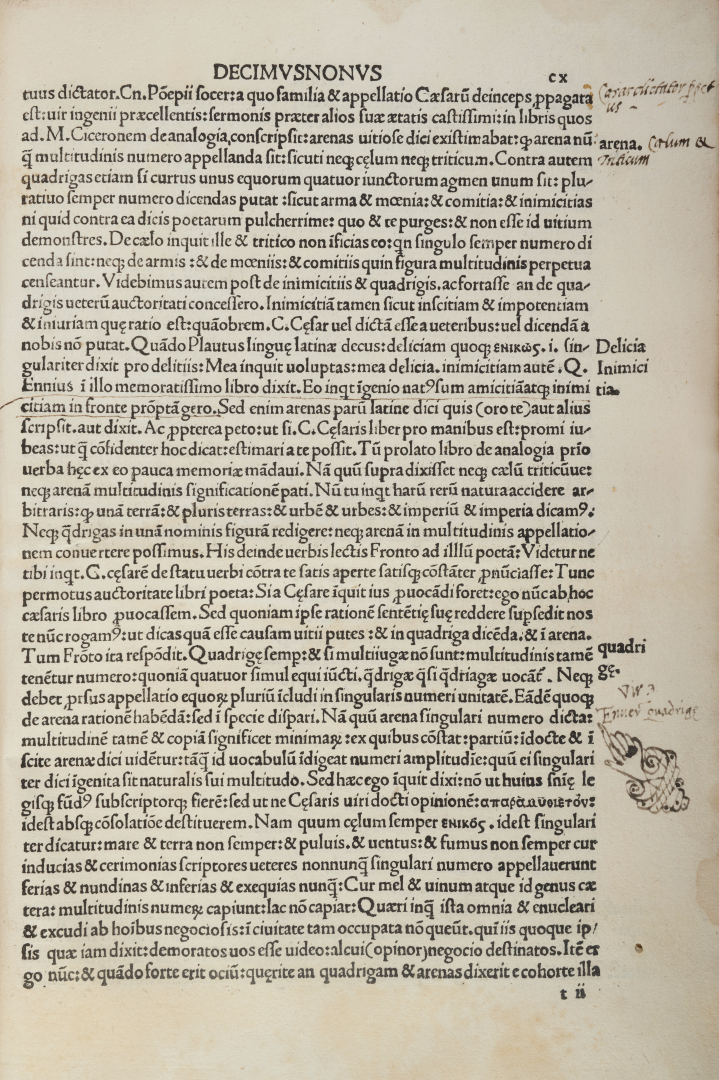 DECIMVSNONVS
cx
tuus dictator. Cn. Põepii socer: a quo familia & appellatio Cæsarũ deinceps ꝓpagata
est: uir ingenii præcellentis: sermonis præter alios suæ ætatis castissimi: in libris quos
ad. M. Ciceronem de analogia conscripsit: arenas uitiose dici existimabat: ꝙ arena nũ
q̃ multitudinis numero appellanda sit: sicuti neqꝫ cęlum neqꝫ triticum. Contra autem
quadrigas etiam si currus unus equorum quatuor iunctorum agmen unum sit: plu-
ratiuo semper numero dicendas putat: sicut arma & mœnia: & comitia: & inimicitias
ni quid contra ea dicis poetarum pulcherrime: quo & te purges: & non esse id uitium
demonstres. De cælo inquit ille & tritico non ificias eo: qn singulo semper numero di
cenda sint: neqꝫ de armis: & de mœniis: & comitiis quin figura multitudinis perpetua
censeantur. Videbimus autem post de inimicitiis & quadrigis. ac fortasse an de qua-
drigis ueterũ auctoritati concessero. Inimicitiã tamen sicut inscitiam & impotentiam
& iniuriam quę ratio est: quãobrem. C. Cęsar uel dictã esse a ueteribus: uel dicendã a
nobis nõ putat. Quãdo Plautus linguę latinæ decus: deliciam quoqꝫ ενικως. i. sin-
gulariter dixit pro delitiis: Mea inquit uoluptas: mea delicia. inimicitiam autẽ. Q.
Ennius ĩ illo memoratissimo libro dixit. Eo inqt ĩgenio natꝰ sum amicitiãatqꝫ inimi
citiam in fronte prõptã gero. Sed enim arenas parũ latine dici quis (oro te) aut alius
scripsit. aut dixit. Ac ꝓpterea peto: ut si. C. Cęsaris liber pro manibus est: promi iu-
beas: ut q̃ cõfidenter hoc dicat: estimari a te possit. Tũ prolato libro de analogia prĩo
uerba hęc ex eo pauca memoriæ mãdaui. Nã quũ supra dixisset neqꝫ cælũ triticũue:
neqꝫ arenã multitudinis significationẽ pati. Nũ tu inqt harũ rerũ natura accidere ar-
bitraris: ꝙ unã terrã: & pluris terras: & urbẽ & urbes: & imperiũ & imperia dicamꝰ.
Neqꝫ q̃drigas in unã nominis figurã redigere: neqꝫ arenã in multitudinis appellatio-
nem conuertere possimus. His deinde uerbis lectis Fronto ad illlũ poetã: Videtur ne
tibi inqt. C. cęsarẽ de statu uerbi cõtra te satis aperte satisqꝫ cõstãter ꝓnũciasse: Tunc
permotus auctoritate libri poeta: Si a Cęsare ĩquit ius ꝓuocãdi foret: ego nũc ab hoc
cæsaris libro ꝓuocassem. Sed quoniam ipse rationẽ sentẽtię suę reddere supsedit nos
te nũc rogamꝰ: ut dicas quã esse causam uitii putes: & in quadriga dicẽda: & ĩ arena.
Tum Frõto ita respõdit. Quadrigę semp: & si multiiugæ nõ sunt: multitudinis tamẽ
tenẽtur numero: quoniã quatuor simul equi iũcti. q̃drigæ q̃si qd̃riagæ uocãt̃. Neqꝫ
debet ꝓrsus appellatio equoꝝ pluriũ ĩcludi in singularis numeri unitatẽ. Eãdẽ quoqꝫ
de arena rationẽ habẽdã: sed ĩ specie dispari. Nã quũ arena singulari numero dicta:
multitudinẽ tamẽ & copiã significet minimaꝝ: ex quibus cõstat: partiũ: ĩdocte & ĩ
scite arenæ dici uidẽtur: tãq̃ id uocabulũ ĩdigeat numeri amplitudĩe: quũ ei singulari
ter dici ĩgenita sit naturalis sui multitudo. Sed hæc ego ĩquit dixi: nõ ut huius snĩę le
gisqꝫ fũdꝰ subscriptorqꝫ fierẽ: sed ut ne Cęsaris uiri docti opinionẽ: απαραμυθιετον:
idest absqꝫ cõsolatiõe destituerem. Nam quum cęlum semper ενικος. idest singulari
ter dicatur: mare & terra non semper: & puluis. & uentus: & fumus non semper cur
inducias & cerimonias scriptores ueteres nonnunq̃ singulari numero appellauerunt
ferias & nundinas & inferias & exequias nunq̃: Cur mel & uinum atque id genus cæ
tera: multitudinis numeꝝ capiunt: lac nõ capiat: Quæri inq̃ ista omnia & enucleari
& excudi ab hoibus negociosis: ĩ ciuitate tam occupata nõ queũt. qui iis quoque ip/
sis quæ iam dixit: demoratos uos esse uideo: alcui (opinor) negocio destinatos. Itẽ er
go nũc: & quãdo forte erit ociũ: quęrite an quadrigam & arenas dixerit e cohorte illa
t ii
arena. Cælum &
triticum
Delicia
Inimici
tia.
quadri
gę.
quadrigę